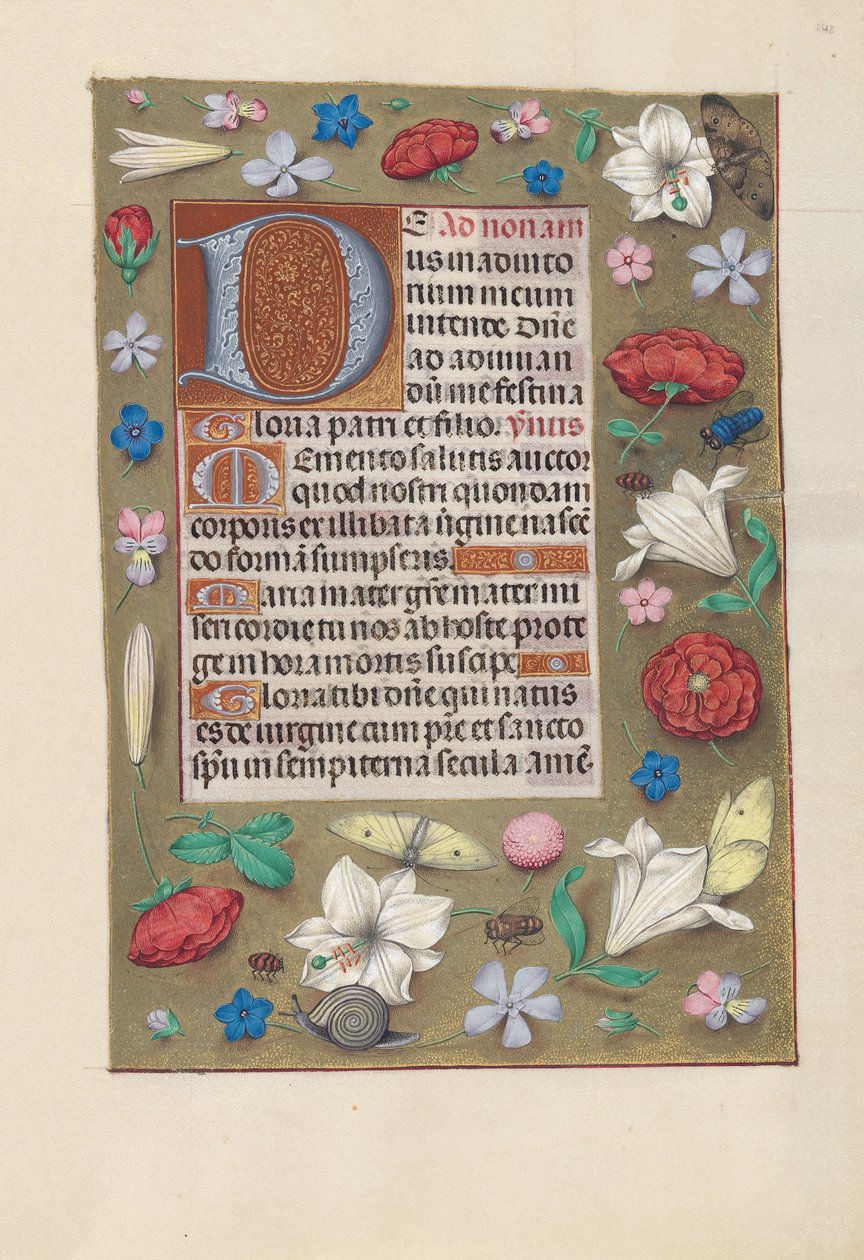 142
DE Ad nonam
us in adiuto
rium meum
intende Dñe
ad adiuuan
dũ me festina
Gloria patri et filio. ẏmıs
Memento salutis auctor
quod nostri quondam
corporis ex illibata ṽgine nascẽ
do formã sumpseris.
Maria mater grẽ mater mi
sericordie tu nos ab hoste prote
ge in hora mortis suscipe
Gloria tibi dñe qui natus
es de uirgine cum pr̃e et sancto
sp̃u in sempiterna secula amẽ.